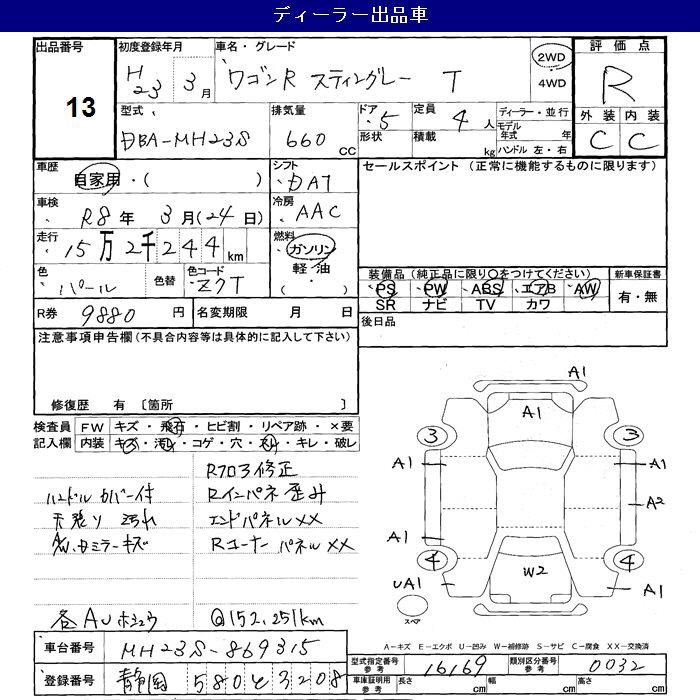 ディーラー出品車
出品番号 13
初度登録年月 H23 3月
車名・グレード ワゴンR スティングレー T
2WD ・ 4WD
評価点 R
外装 内装
C C
型式 DBA-MH23S
排気量 660 cc
ドア ・5
形状
定員 4人
積載 kg
ディーラー・並行
モデル年式 年
ハンドル 左・右
車歴 自家用・( )
シフト ・DAT
セールスポイント (正常に機能するものに限ります)
車検 R8年 3月(24日)
冷房 ・AAC
走行 15万2千244km
燃料 ガソリン・軽油・( )
色 パール 色替
色コード Z7T
装備品(純正品に限り○をつけてください)
新車保証書
PS PW ABS エアB AW
SR ナビ TV カワ
有・無
R券 9880円
名変期限 月 日
後日品
注意事項申告欄(不具合内容等は具体的に記入して下さい)
修復歴 有 〔箇所 〕
検査員記入欄
FW キズ・飛石・ヒビ割・リペア跡・×要
内装 キズ・汚れ・コゲ・穴・スレ・キレ・破レ
Rフロア修正
ハンドルカバー付 Rインパネ歪み
天張り汚れ エンドパネルXX
A/W・ミラーキズ Rコーナーパネル XX
各AUホシュウ @152,251km
A1
A1
3 3
A1 A1
A2
A1 A1
4 4
UA1 W2 A1
スペア
A-キズ E-エクボ U-凹み W-補修跡 S-サビ C-腐食 XX-交換済
車台番号 MH23S-869315
登録番号 静岡 580 と 3208
型式指定番号 参考 16169
類別区分番号 参考 0032
車庫証明用 参考 長さ cm 幅 cm 高さ cm